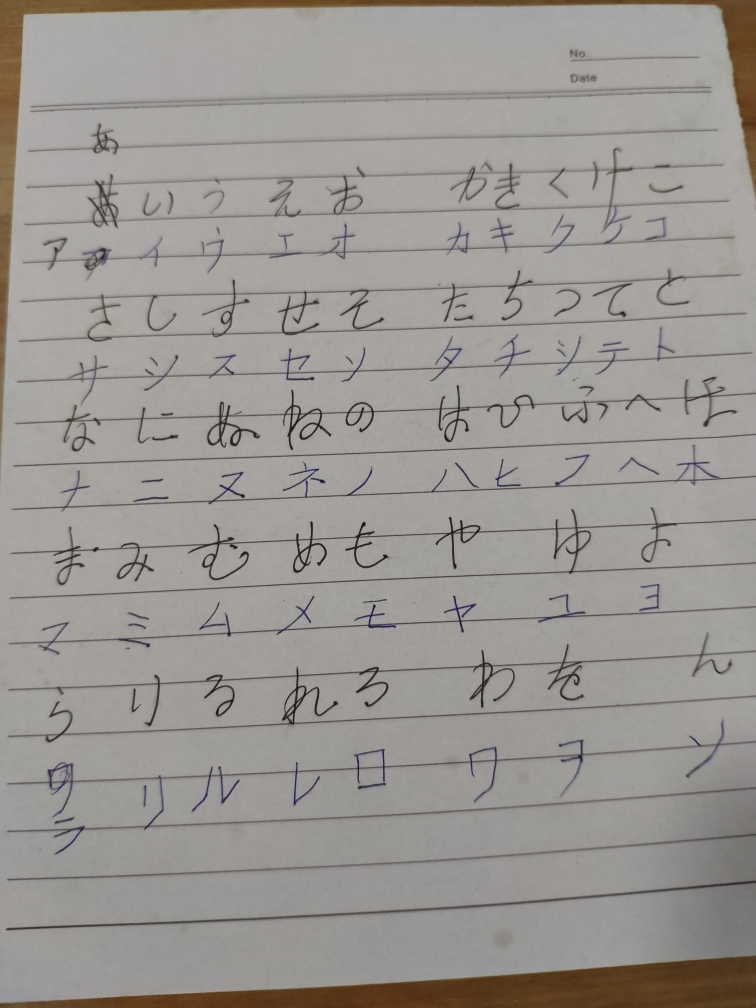 No
Date
あ
あ い う え お か き く け こ
ア イ ウ エ オ カ キ ク ケ コ
さ し す せ そ た ち つ て と
サ シ ス セ ソ タ チ シ テ ト
な に ぬ ね の は ひ ふ へ ほ
ナ ニ ヌ ネ ノ ハ ヒ フ ヘ ホ
ま み む め も や ゆ よ
マ ミ ム メ モ ヤ ユ ヨ
ら り る れ ろ わ を ん
リ ル レ ロ ワ ヲ ソ
ラ